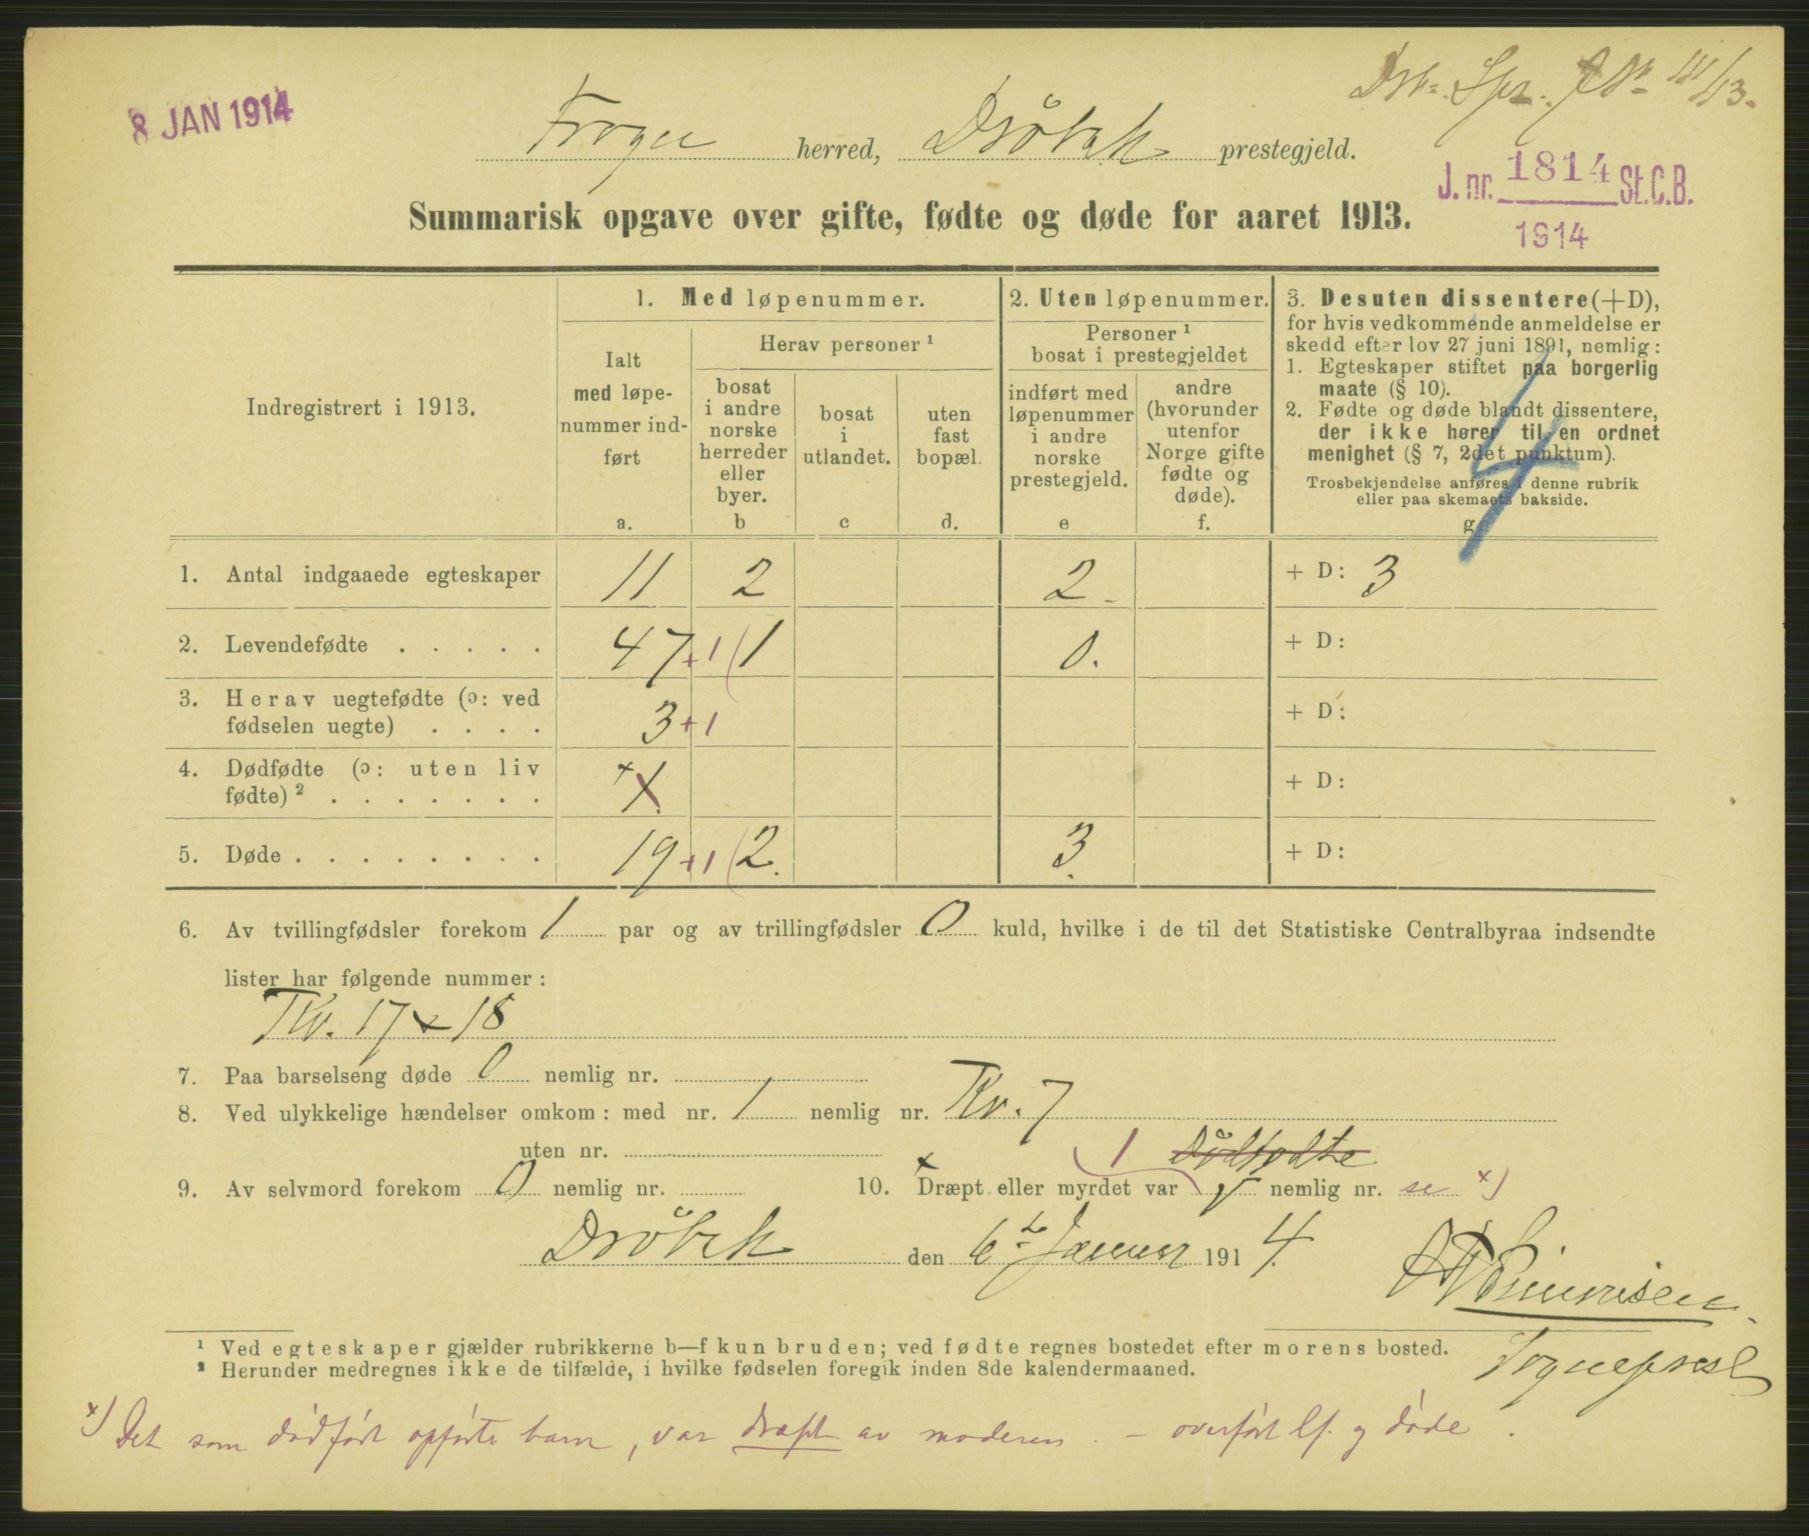 8 JAN 1914
Frogn herred, Drøbak prestegjeld.
J. nr. 1814 St.C.B.
1914
Summarisk opgave over gifte, fødte og døde for aaret 1913.
Indregistrert i 1913.
1. Med løpenummer.
Ialt
med løpe-
nummer ind-
ført
a.
Herav personer ¹
bosat
i andre
norske
herreder
eller
byer.
b
bosat
i
utlandet.
c
uten
fast
bopæl.
d.
2. Uten løpenummer.
Personer ¹
bosat i prestegjeldet
indført med
løpenummer
i andre
norske
prestegjeld.
e
andre
(hvorunder
utenfor
Norge gifte
fødte og
døde).
f.
3. Desuten dissentere (+D),
for hvis vedkommende anmeldelse er
skedd efter lov 27 juni 1891, nemlig:
1. Egteskaper stiftet paa borgerlig
maate (§ 10).
2. Fødte og døde blandt dissentere,
der ikke hører til en ordnet
menighet (§ 7, 2det punktum).
Trosbekjendelse anføres i denne rubrik
eller paa skemaets bakside.
g
4
1. Antal indgaaede egteskaper 11 2 2 + D: 3
2. Levendefødte . . . . . 47 +1 (1 0. + D:
3. Herav uegtefødte (ɔ: ved
fødselen uegte) . . . . 3 +1 + D:
4. Dødfødte (ɔ: uten liv
fødte) ² . . . . . . . x 1 + D:
5. Døde . . . . . . . . 19 +1 (2. 3. + D:
6. Av tvillingfødsler forekom 1 par og av trillingfødsler 0 kuld, hvilke i de til det Statistiske Centralbyraa indsendte
lister har følgende nummer:
Kv. 17 & 18
7. Paa barselseng døde 0 nemlig nr.
8. Ved ulykkelige hændelser omkom: med nr. 1 nemlig nr. Kv. 7
uten nr.
1 Dødfødte
9. Av selvmord forekom 0 nemlig nr.
10. Dræpt eller myrdet var nemlig nr. se x)
Drøbak den 6te Januar 1914.
Sogneprest
¹ Ved egteskaper gjælder rubrikkerne b—f kun bruden; ved fødte regnes bostedet efter morens bosted.
² Herunder medregnes ikke de tilfælde, i hvilke fødselen foregik inden 8de kalendermaaned.
x) Det som dødført opførte barn, var dræpt av moderen. – overført lf. og døde.